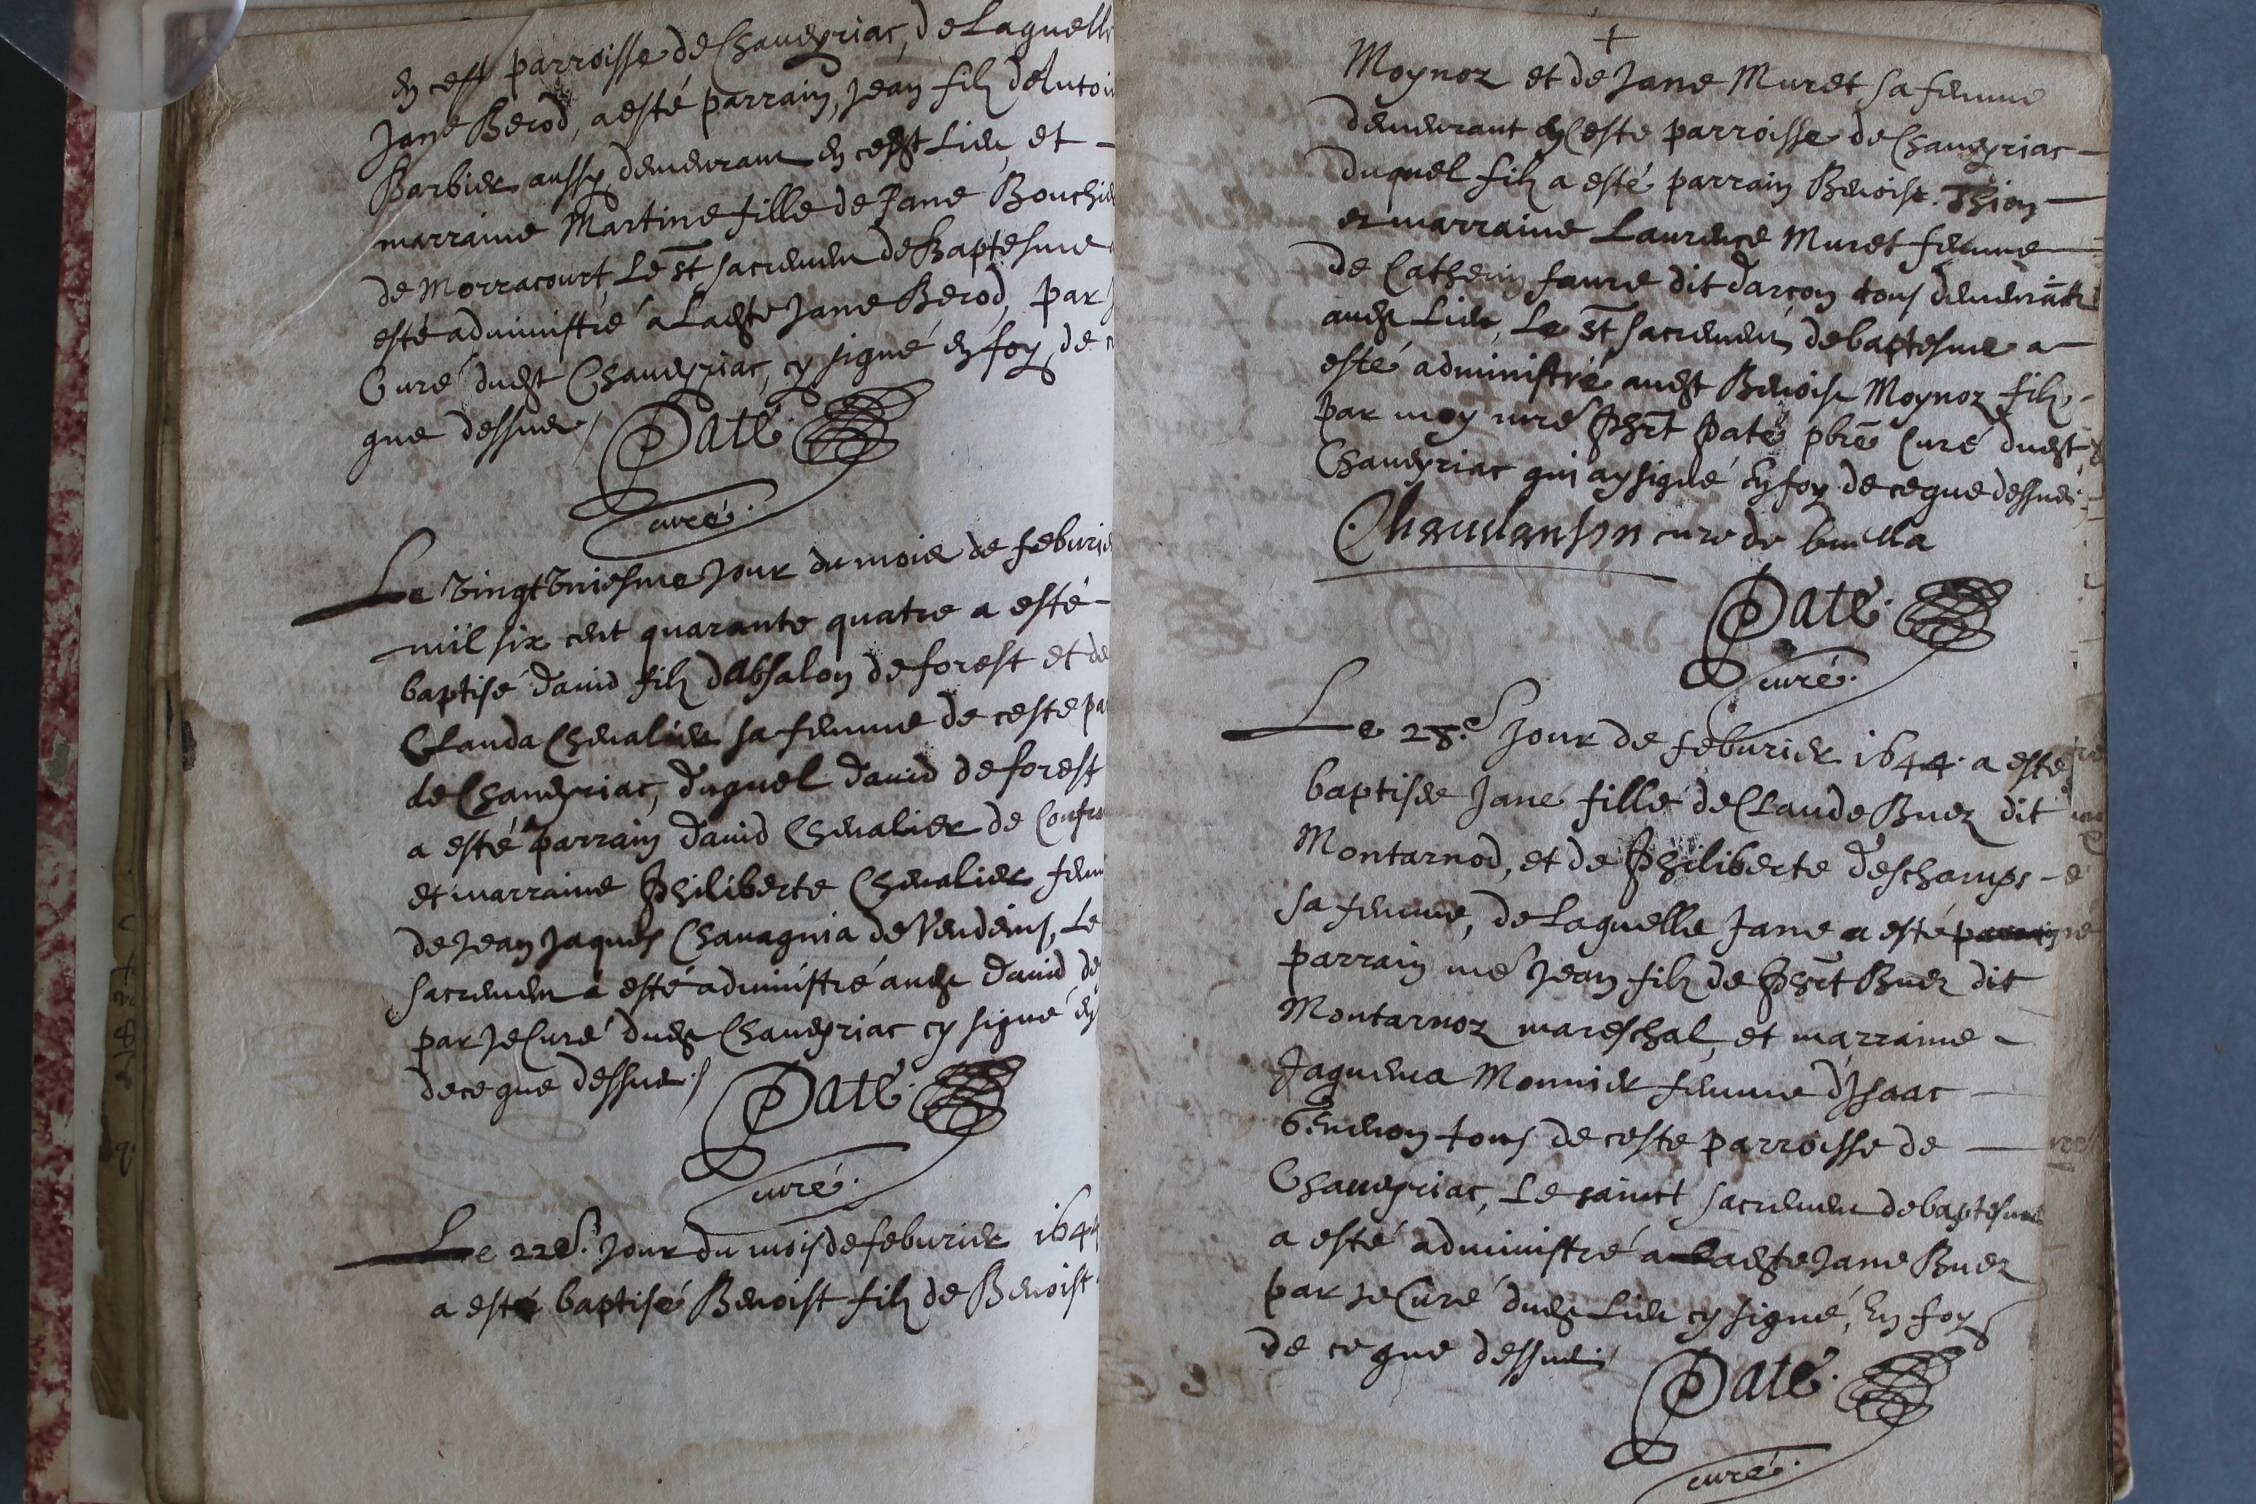 en cest parroisse de Chaveyriac, de Laquelle
Jane Berod, a esté parrain, Jean filz dAntoi
Barbier aussy demeurant en cedt Lieu, et
marraine Martine fille de Jane Bouchie
de Morracourt, Le St sacrement de Baptesme
esté administré a Ladte Jane Berod, par
Curé dudt Chaveyriac, cy signé en foy de
que dessus / Paté
curé.
Le vingt vniesme Jour du mois de feburie
mil six cent quarante quatre a esté
baptisé dauid filz dAbsalon de forest et de
Clauda Cheualier sa femme de ceste pa
de Chaveyriac, duquel dauid de forest
a esté parrain dauid Cheualier de Confra
et marraine Philiberte Cheualier fem
de Jean Jaques Chauagnia de Vendeins, Le
sacrement a esté administré audt dauid de
par Je Curé dudt Chaveyriac cy signé en
de ce que dessus / Paté.
curé.
Le 22e. Jour du mois de feburier 1644
a esté baptisé Benoist filz de Benoist
Moynoz et de Jane Muret sa femme
demeurant en Ceste parroisse de Chaveyriac
duquel filz a esté parrain Benoist Thion
et marraine Laurence Muret femme
de Catherin faure dit darcon tous demeurāts
audt Lieu, Le St sacrement de baptesme a
esté administré audt Benoist Moynoz filz
par moy curé Phrt Paté pbre Curé dudt
Chaveyriac qui ay signé En foy de ce que dessus
Chaudanson cure de buella
Paté.
curé.
Le 28.e Jour de feburier 1644. a esté
baptisée Jane fille de Claude Buez dit
Montarnod, et de Philiberte deschamps
sa femme, de Laquelle Jane a esté
parrain me Jean filz de Phrt Buez dit
Montarnoz mareschal, et marraine
Jaquema Monnier femme dIsaac
Genevon tous de ceste parroisse de
Chaveyriac, Le sainct sacrement de baptesme
a esté administré a Ladte Jane Buez
par Je Curé dudt Lieu cy signé, En foy
de ce que dessus / Paté.
curé.